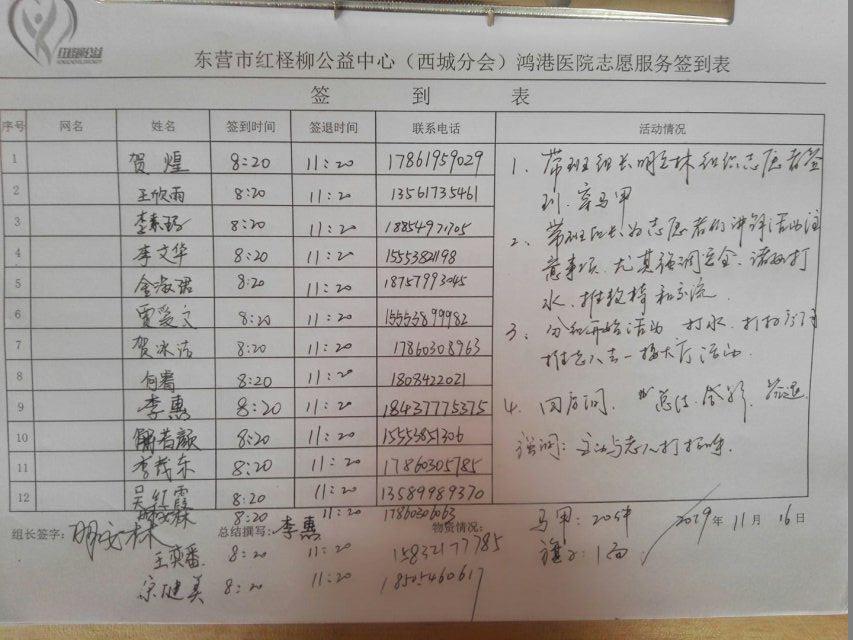 东营市红柽柳公益中心（西城分会）鸿港医院志愿服务签到表
签 到 表
序号 网名 姓名 签到时间 签退时间 联系电话 活动情况
1 贺煌 8:20 11:20 17861959029
2 王欣雨 8:20 11:20 13561735461
3 8:20 11:20 18854921705
4 李文华 8:20 11:20 15553821198
5 金淑珺 8:20 11:20 18757993045
6 贾爱文 8:20 11:20 15553899982
7 贺冰洁 8:20 11:20 17860308963
8 8:20 11:20 1808422021
9 李惠 8:20 11:20 18437775375
10 8:20 11:20 15553851306
11 李茂东 8:20 11:20 17860305785
12 吴红霞 8:20 11:20 13589989370
8:20 11:20 17860306063
1、带班组长明立林组织志愿者签
到、穿马甲
2、带班组长为志愿者们讲解活动注
意事项、尤其强调安全、诸如打
水、推轮椅和交流
3、分组开始活动 打水、打扫
4、 总结、合影、签退
强调：主动与老人打招呼.
组长签字： 总结撰写：李惠 物资情况： 马甲：20件 2019年11月16日
旗子：1面
8:20 11:20 15832177785
宋健美 8:20 11:20 18505460617